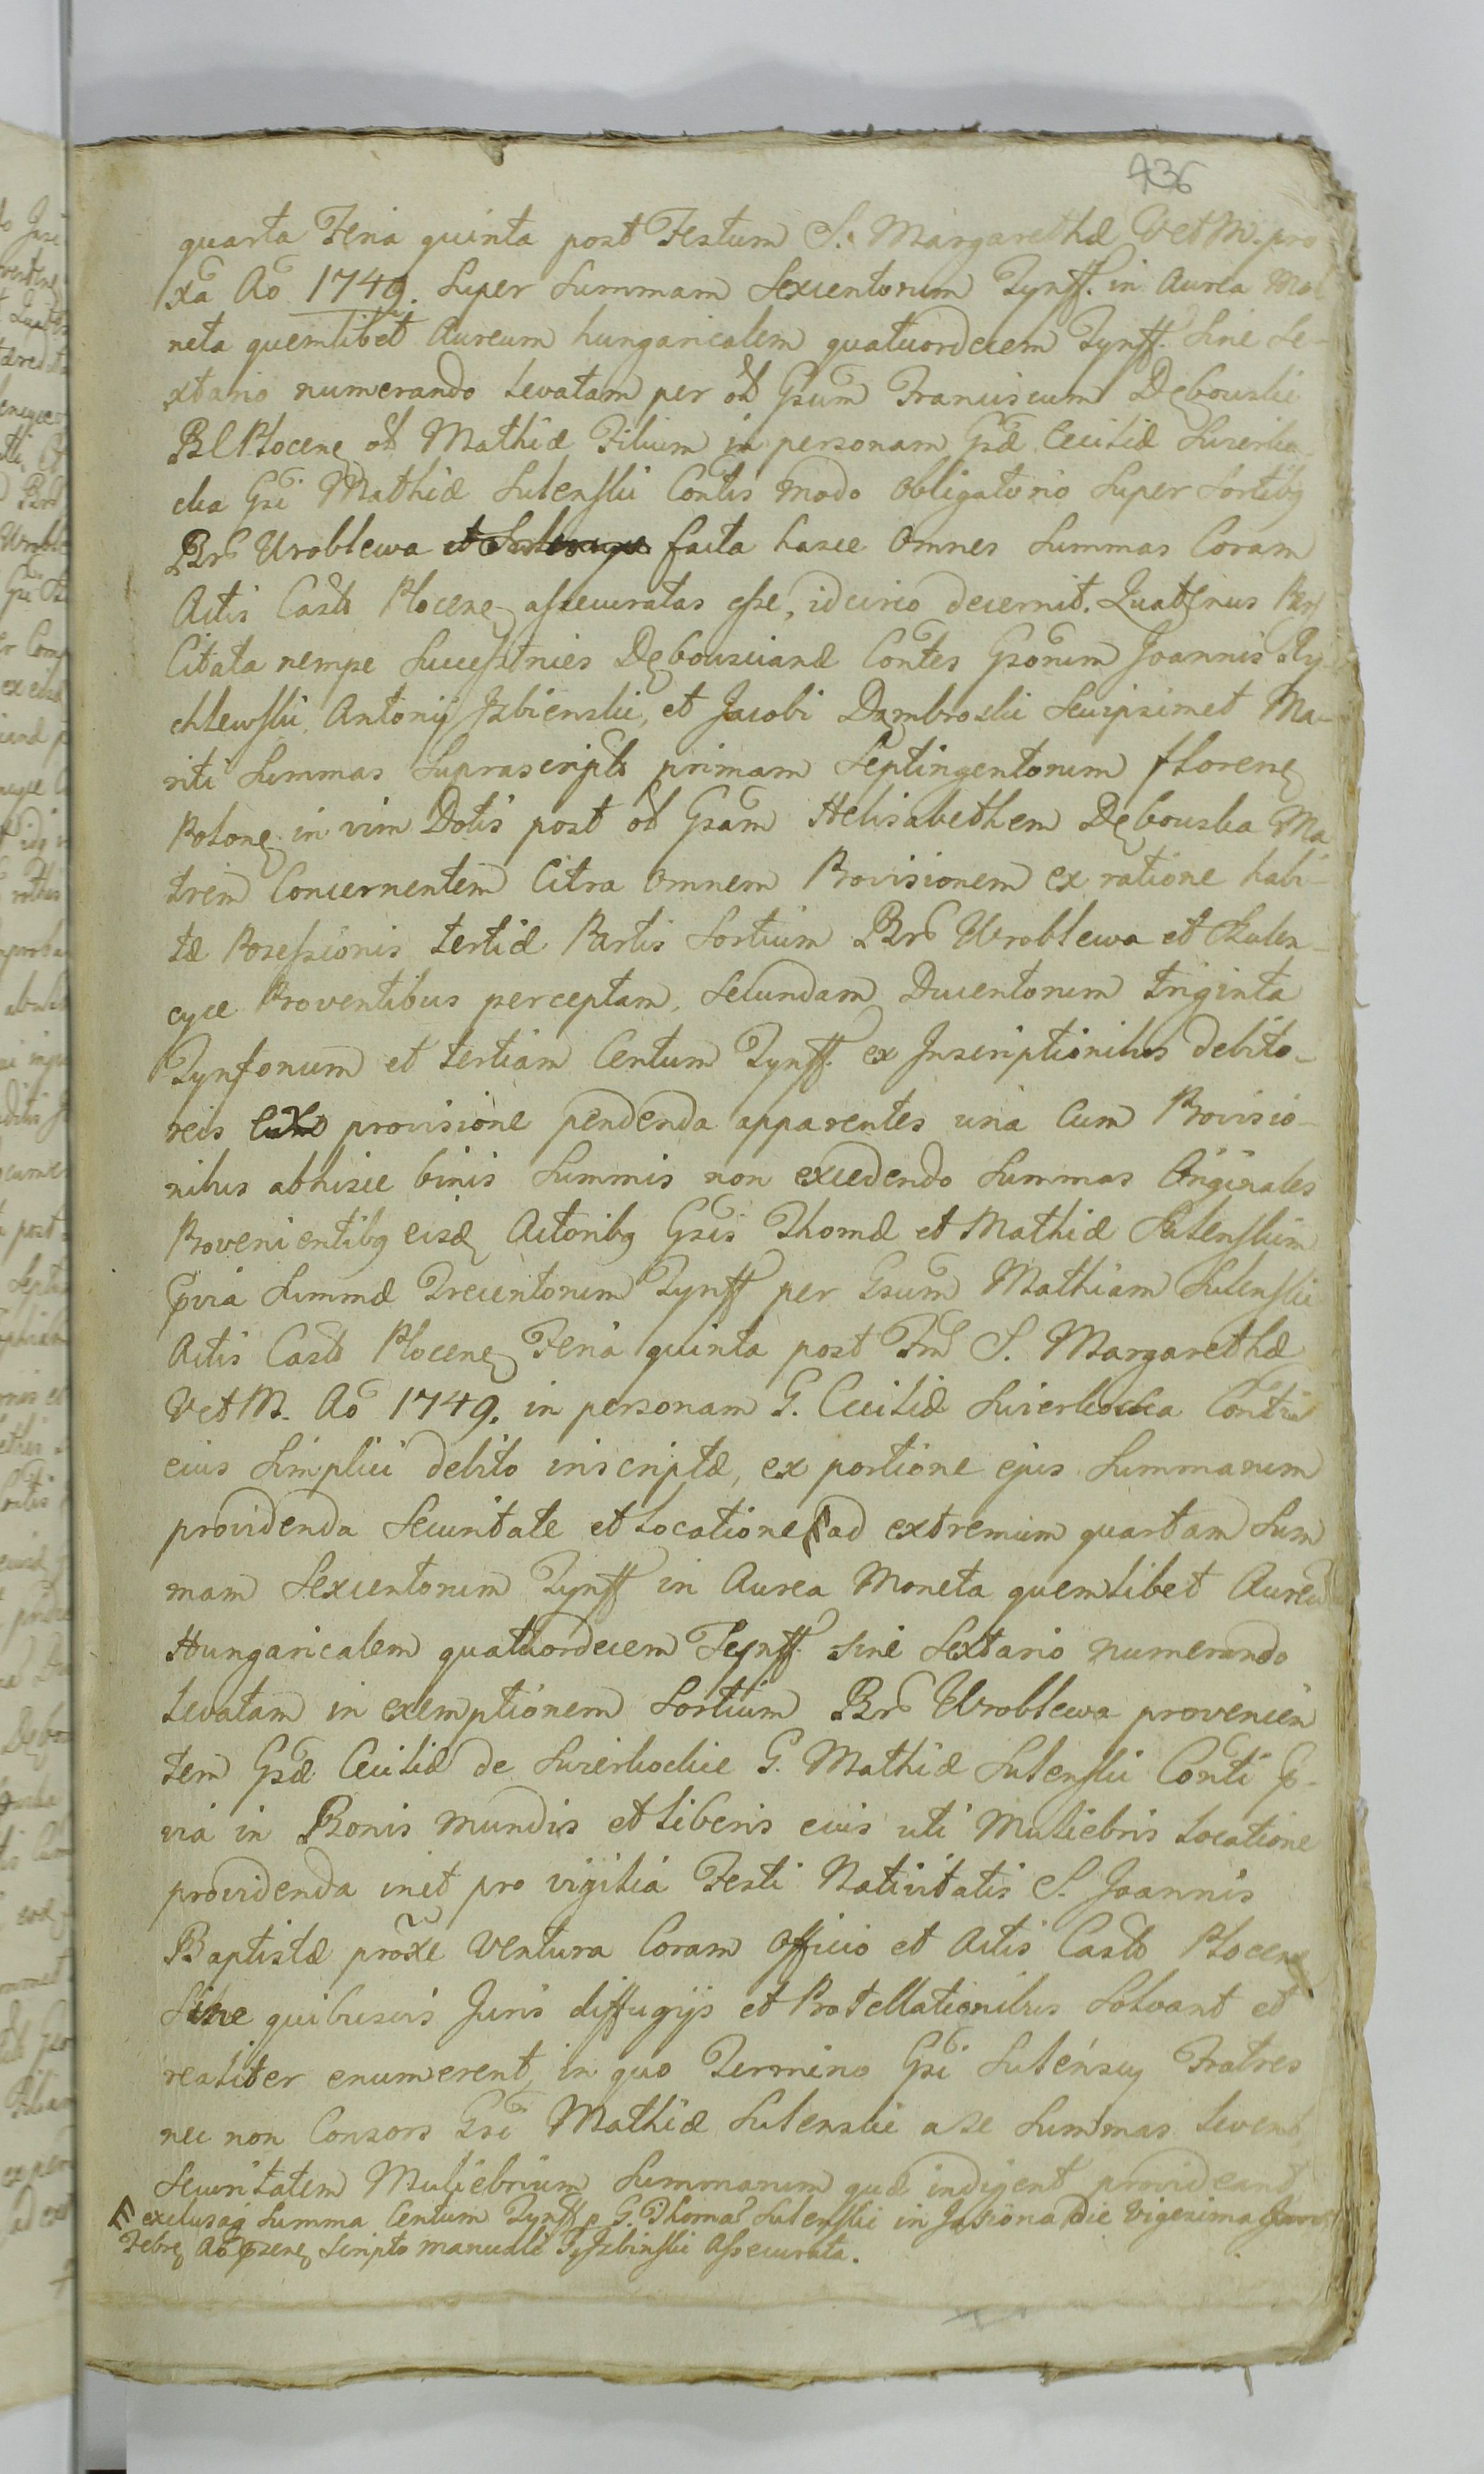 436
quarta Feria quinta post Festum S. Margarethæ VetM. pro
xa Ao 1749. Super Summam Sexcentorum Tynff. in Aurea Mo
neta quemlibet Aureum hungaricalem quatuordecem Tynff. Sine Se-
xtario numerando levatam per od Gsum Franciscum Dębouski
BCPlocen od Mathiæ Filium in personam Gsæ Ceciliæ
cka Gsi Mathiæ Sulenski Contis modo obligatorio Super Sortibg
Br Wroblewa facta hasce Omnes Summas Coram
Actis Cast Plocen assecuratas esse, idcirco decernit. Quatenus
Citata nempe Successtrices Dębouscianæ Contes Gsorum Joannis Ry-
chlewski Antonij Jzbienski, et Jacobi Dambroski Seuipsimet Ma-
riti Summas Suprascript primam Septingentorum floren
Polon in vim Dotis post od Gsam Helisabethem Dębouska Ma
trem Concernentem Citra Omnem Provisionem ex ratione habi-
tæ Posessionis tertiæ Partis Sortium Br Wroblewa et Sulen-
cyce Proventibus perceptam, Secundam Ducentorum triginta
Tynfonum et tertiam Centum Tynff. ex Inscriptionibus debito-
reis provisione pendenda apparentes una Cum Provisio-
nibus abhisce binis Summis non excedendo Summas Originales
Provenientibg eisd Actoribg Gsis Thomæ et Mathiæ Sulenskim
pvia Summæ Trecentorum Tynff per Gsum Mathiam Sulenski
Actis Cast Plocen Feria quinta post Fm S. Margarethæ
VetM. Ao 1749. in personam G. Ceciliæ Contis
eius Simplici debito inscriptæ, ex portione ejus Summarum
providenda Securitate et Locatione ad extremum quartam Sum
mam Sexcentorum Tynff in Aurea Moneta quemlibet Aureu
Hungaricalem quatuordecem Teynff. sine Sextario numerando
Levatam in exemptionem Sortium Br Wroblewa provenien
tem Gsæ Ceciliæ de G. Mathiæ Sulenski Conti p-
via in Bonis mundis et liberis eius uti Muliebris Locatione
providenda inet pro vigilia Festi Nativitatis S. Joannis
Baptistæ proxe Ventura Coram Officio et Actis Cast Plocen
Sine quibusvis Juris diffugijs et Protellationibus Solvant et
realiter enumerent, in quo Termino Gsi Suleńscy Fratres
nec non Consors Gsi Mathiæ Sulenski a se Summas levent,
Securitatem Muliebrium Summarum quæ indigent provideant,
exclusaq Summa Centum Tynff p G. Thomas Sulenski in die Vigesima
Febr Ao pzen Scripto manuali Assecurata.